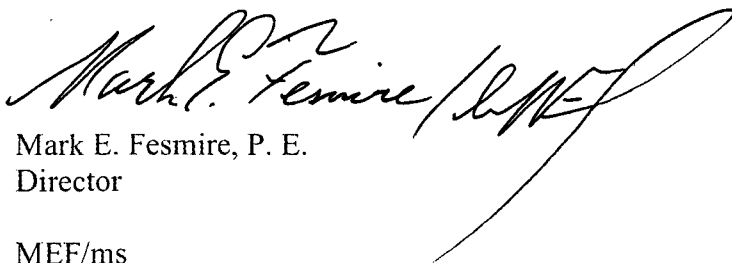 Mark E. Fesmire/
Mark E. Fesmire, P. E.
Director
MEF/ms